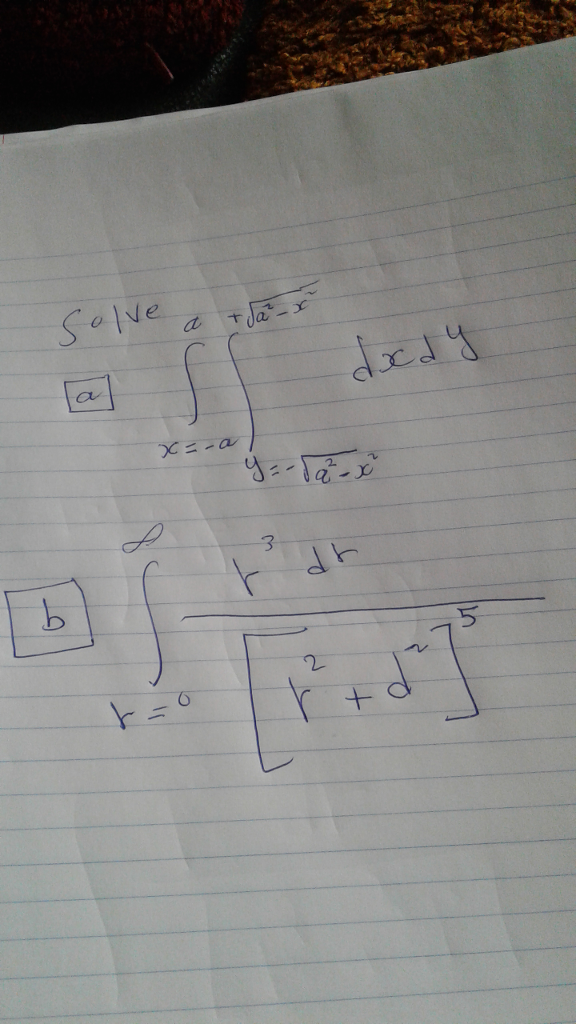 Solve
a ∫_{x=-a}^{a} ∫_{y=-√(a²-x²)}^{+√(a²-x²)} dxdy
b ∫_{r=0}^{∞} r³ dr / [r² + d²]⁵